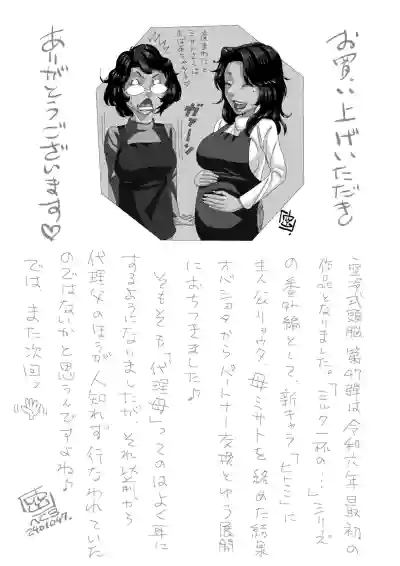 お買い上げいただき
ありがとうございます♡
ガァーン
空冷式頭脳 第47弾は令和六年最初の
作品となりました。「ミルク一杯の…」シリーズ
の番外編として、新キャラ「ヒトミ」に
主人公リョウタ、母ミサトを絡めた結果
オバショタからパートナー交換とゆう展開
におちつきました♪
そもそも「代理母」ってのはよく耳に
するようになりましたが、それ以前から
代理父のほうが人知れず行なわれていた
のではないかと思うんですよね♪
では また次回っ